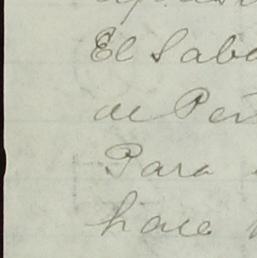 El Saba
de Per
Para
hace